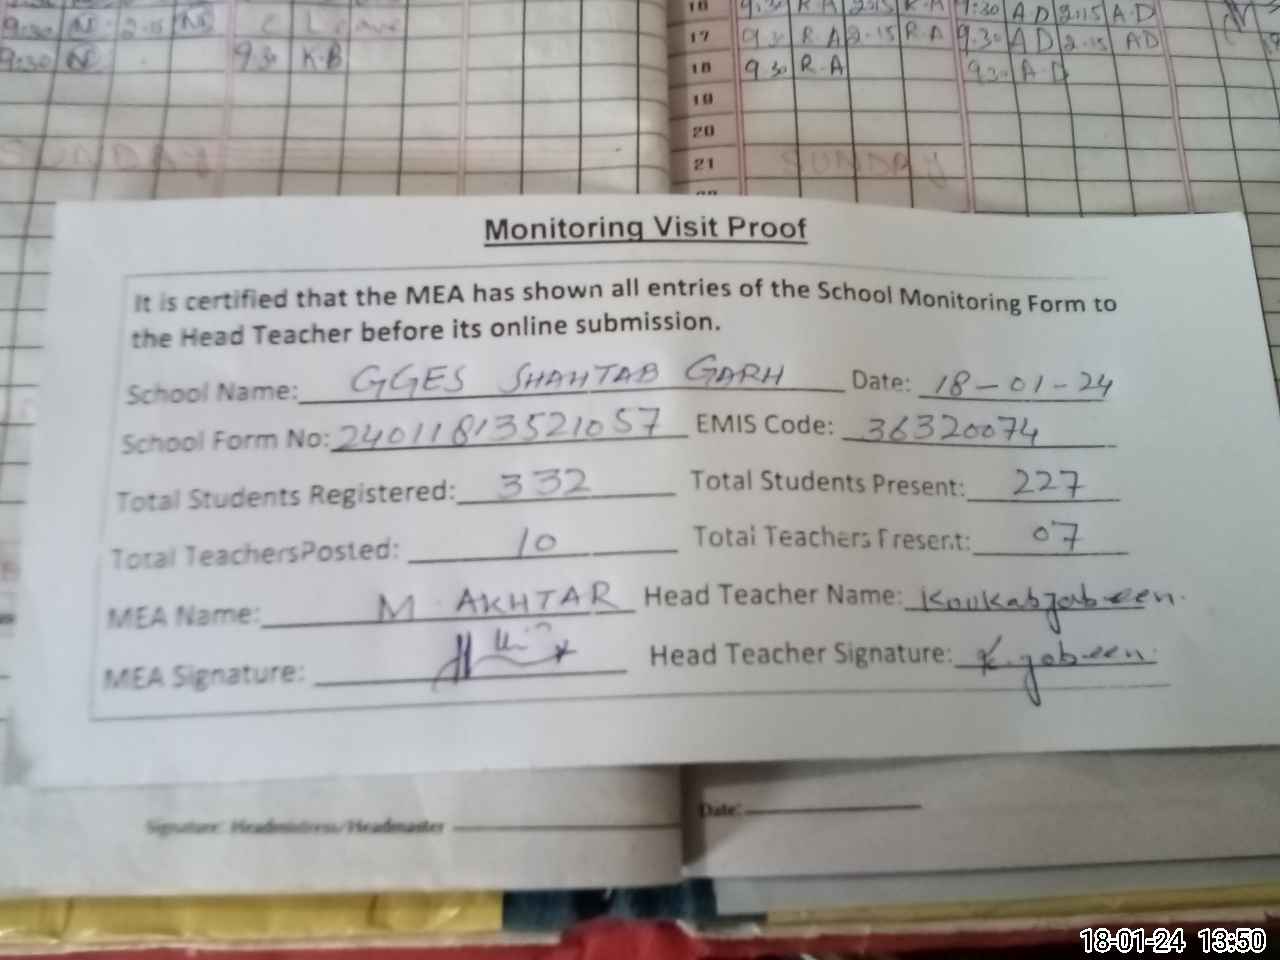 9:30 N 2.15 N C Leave
9:30 N 9.30 K.B
SUNDAY
16 9.30 R.A 2.15 R.A 9:30 A.D 2:15 A.D
17 9.30 R.A 2.15 R.A 9.30 A D 2.15 AD
18 9 30 R.A 9.30 A.D
19
20
21 SUNDAY
Monitoring Visit Proof
It is certified that the MEA has shown all entries of the School Monitoring Form to
the Head Teacher before its online submission.
School Name: GGES SHAHTAB GARH Date: 18-01-24
School Form No: 24011813521057 EMIS Code: 36320074
Total Students Registered: 332 Total Students Present: 227
Total TeachersPosted: 10 Total Teachers Present: 07
MEA Name: M. AKHTAR Head Teacher Name: Koukab Jabeen.
MEA Signature: Head Teacher Signature: K. jabeen.
Signature: Headmistress/Headmaster Date:
18-01-24 13:50